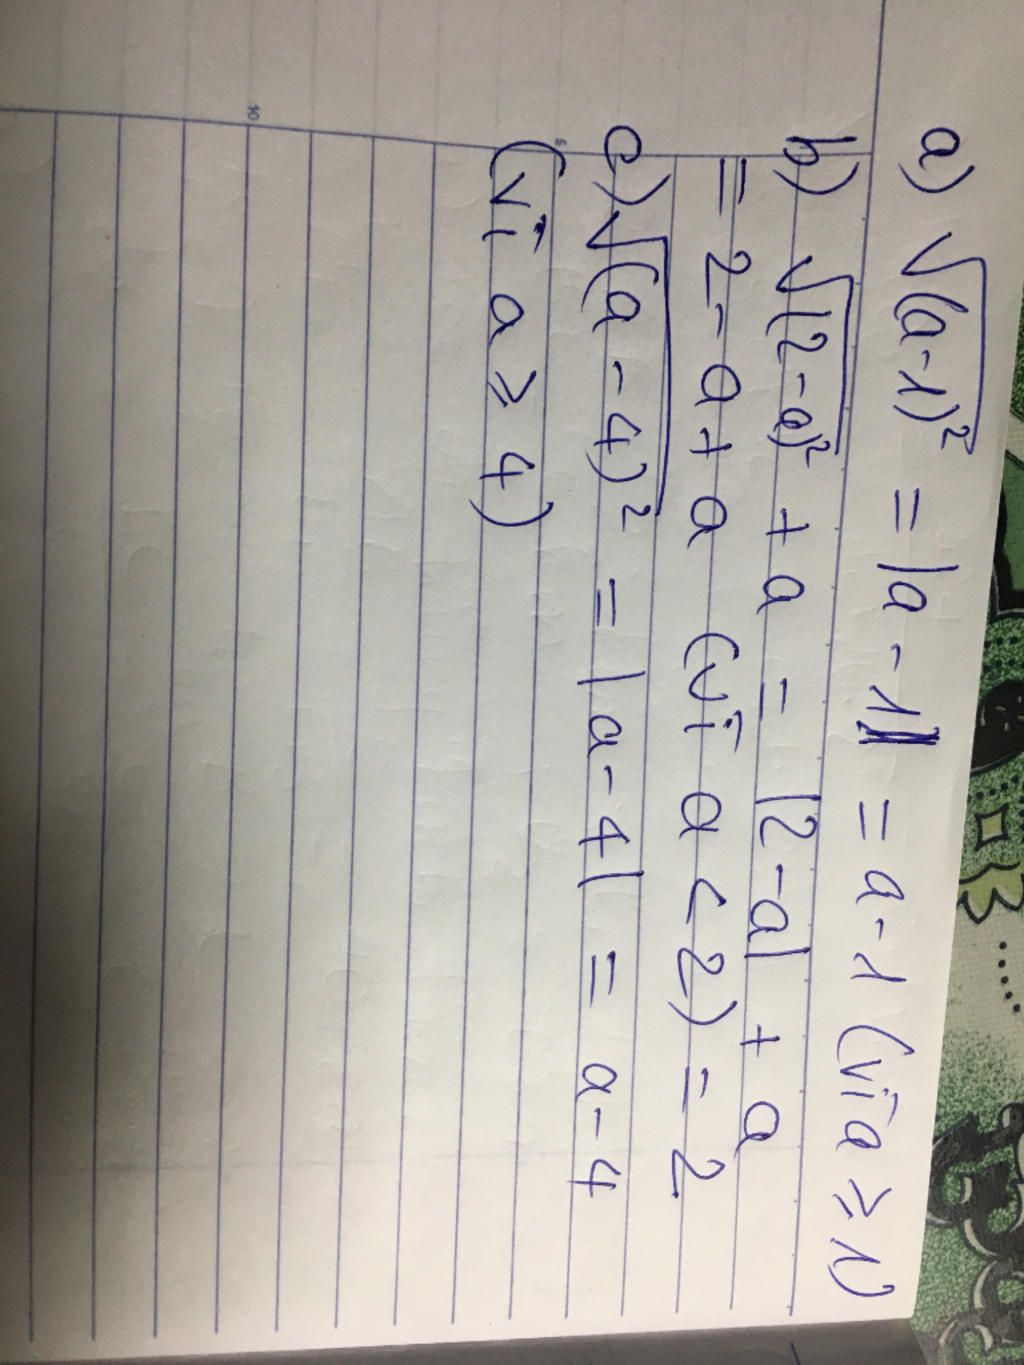 a) √(a-1)² = |a-1| = a-1 (vì a ≥ 1)
b) √(2-a)² + a = |2-a| + a
= 2-a+a (vì a < 2) = 2
c) √(a-4)² = |a-4| = a-4
(vì a ≥ 4)
5
10